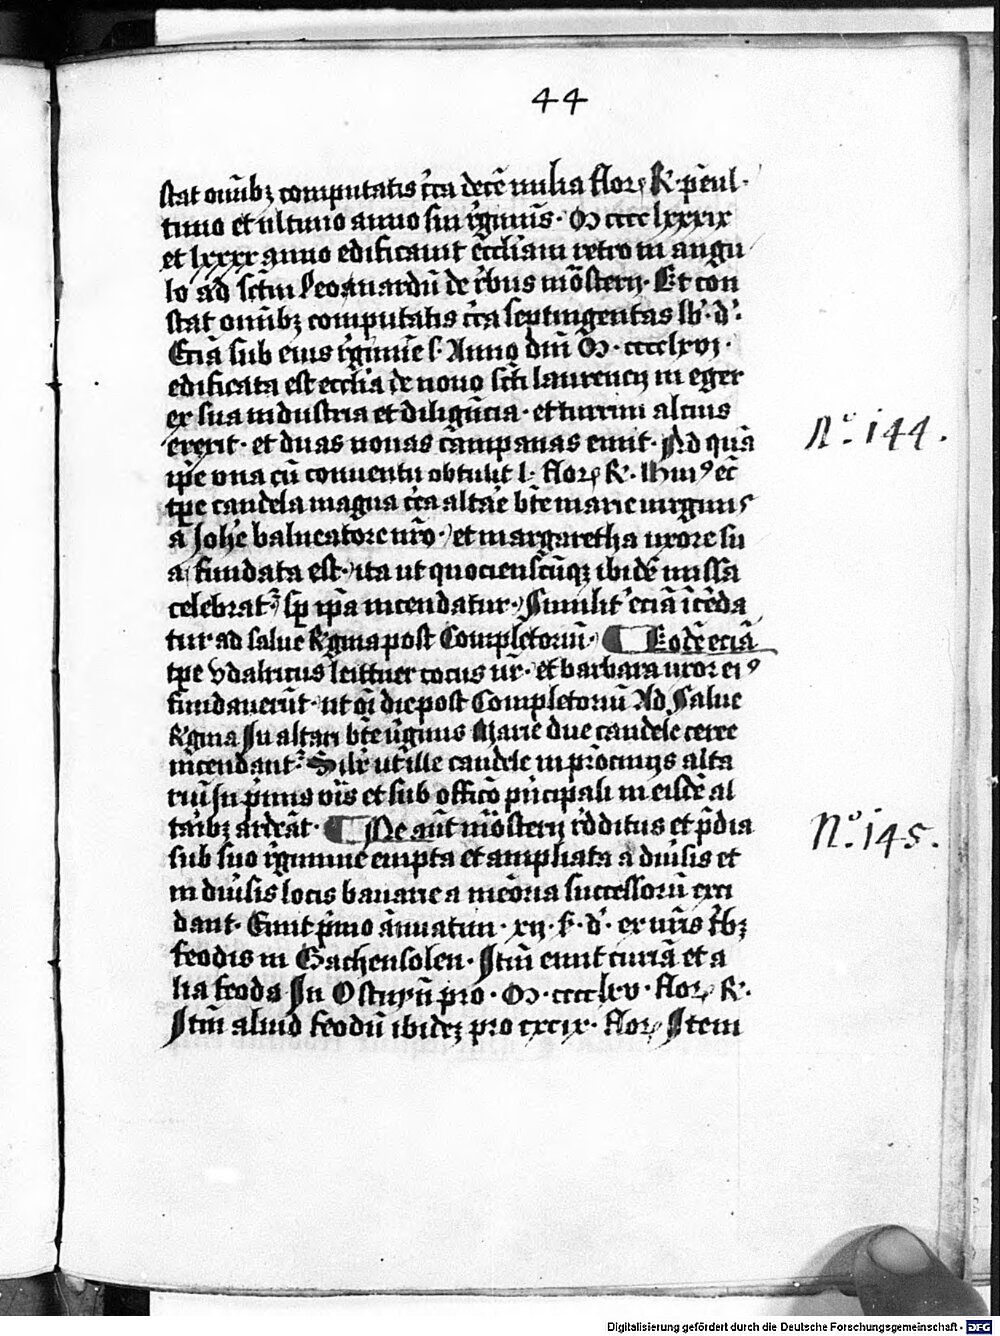 44
stat oīnibz computatis c̄ca decē milia florꝝ R. pēul-
timo et ultimo anno sui r̄giminis. M cccc lxxxix
et lxxxx anno edificauit eccliam retro in angu
lo ad sctm̄ Leonardū de r̄bus mōsterij. Et con
stat oīnibz computatis c̄ca septingentas lb. d.
Eciā sub eius r̄gimīe s. Anno dm̄ M. cccclxvj.
edificata est ecclīa de nouo scti laurencij in eger
ex sua industria et diligēncia. et turrim alcius
erexit. et duas nouas cāmpanas emit. Ad quā
ip̄e vna cū conuentu obtulit l. florꝝ R. Huiꝰ ec̄
tp̄e candela magna c̄ca altar̄e btē marie uirginis
a Johe balneatore nr̄o. et margaretha uxore su
a fundata est. ita ut quocienscūqꝫ ibidē missa
celebrat᷑ sp̱ ip̄a incendatur. Similit᷑ eciā īcēda
tur ad salue R̄gina post Completoriū. Eodē eciā
tp̄e Vdalricus leittner cocus nr̄. et barbara uxor eiꝰ
fundauerūt. ut oī die post Completoriū Ad Salue
R̄gina In altari btē ūginis Marie due candele ceree
incendant᷑. Silr̄ ut ille candele in p̄ocinijs alta
riū In p̄mis vīs et sub officō p̄ncipali in eisdē al
tarībz ardeāt. Ne aūt mōsterij r̄dditus et p̄dia
sub suo r̄gimine empta et ampliata a diūsis et
in diūsis locis bauarie a mēoria successorū exci
dant. Emit p̄mo ānuatim. xij. ß. d. ex nr̄is r̄bz
feodis in Gachensolen. Itm̄ emit curiā et a
lia feoda In Ostuyn̄ pro. M. cccc lxv. florꝝ R.
Itm̄ aliud feodū ibidez pro cxcix. florꝝ Item
Nº. 144.
Nº. 145.
Digitalisierung gefördert durch die Deutsche Forschungsgemeinschaft - DFG